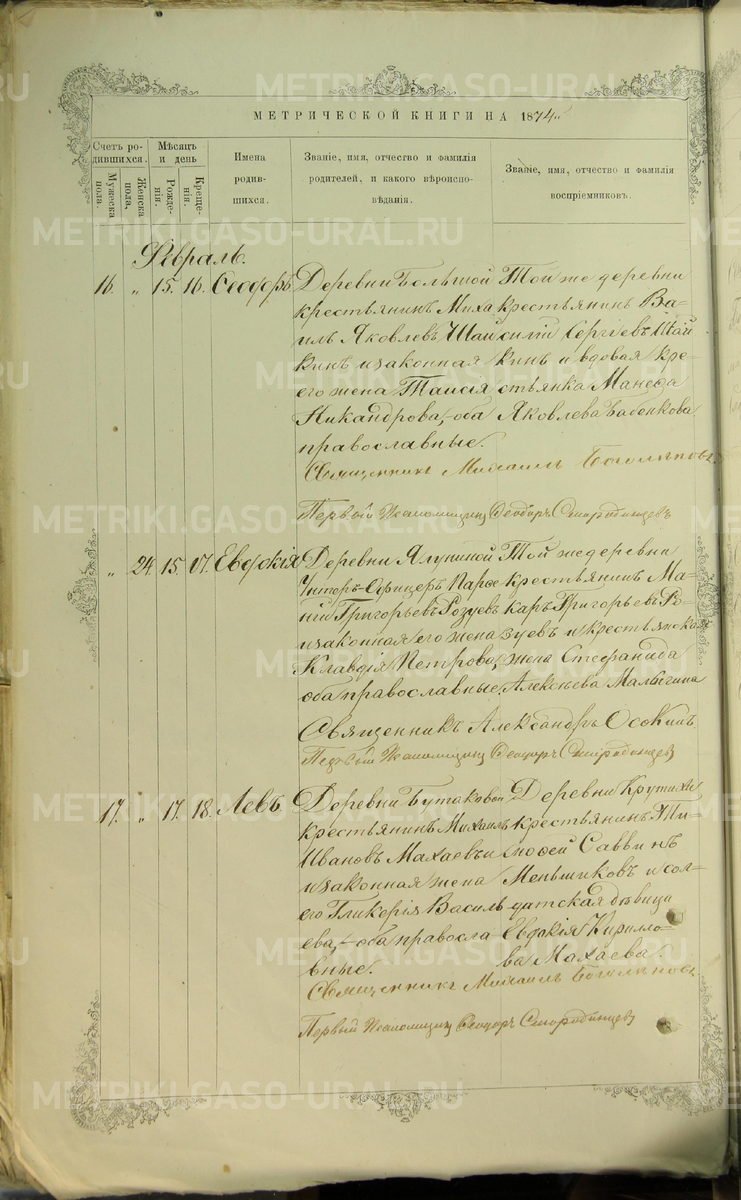 МЕТРИЧЕСКОЙ КНИГИ НА 1874
Счетъ родившихся.
Мѣсяцъ и день
Мужеска пола.
Женска пола.
Рожденія.
Крещенія.
Имена родившихся.
Званіе, имя, отчество и фамилія родителей, и какого вѣроисповѣданія.
Званіе, имя, отчество и фамилія воспріемниковъ.
Февраль.
16. " 15. 16. Ѳеодоръ
Деревни Большой
крестьянинъ Миха
илъ Яковлевъ Шай
кинъ и законная
его жена Таисія
Никандрова,-оба
православные.
Той же деревни
крестьянинъ Ва-
силій Сергіевъ Шай
кинъ и вдовая кре-
стьянка Манефа
Яковлева Бабенкова
Священникъ Михаилъ
Первый Ѳеодоръ Смородинцевъ
" 24. 15. 17. Евдокія
Деревни Ялуниной
Унтеръ-Офицеръ Парѳе
ній Григорьевъ Розуевъ
и законная его жена
Клавдія Петрова,
оба православные,
Той же деревни
крестьянинъ Ма-
каръ Григорьевъ Ро-
зуевъ и крестьянская
жена Стефанида
Алексѣева Малыгина
Священникъ Александръ Осокинъ
Первый Ѳеодоръ Смородинцевъ
17. " 17. 18. Левъ
Деревни Бутаковой
крестьянинъ Михаилъ
Ивановъ Махаевъ и
законная жена
его Гликерія Василь
ева,-оба правосла-
вные.
Деревни Крутихи
крестьянинъ Ти-
моѳей Саввинъ
Меньшиковъ и сол-
датская дѣвица
Евдокія Кирилло-
ва Махаева.
Священникъ Михаилъ
Первый Ѳеодоръ Смородинцевъ
METRIKI.GASO-URAL.RU